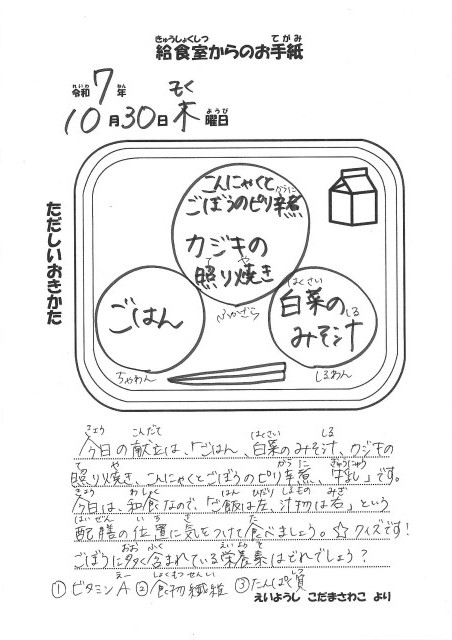 きゅうしょくしつ てがみ
給食室からのお手紙
れいわ ねん もく
令和7年
10月30日木曜日
ようび
ただしいおきかた
こんにゃくと
ごぼうのピリ辛煮
からに
カジキの
照り焼き
て や
ふかざら
ごはん
ちゃわん
はくさい
白菜の
みそ汁
しる
しるわん
きょう こんだて はくさい しる
今日の献立は、「ごはん、白菜のみそ汁、カジキの
て や からに ぎゅうにゅう
照り焼き、こんにゃくとごぼうのピリ辛煮、牛乳」です。
きょう わしょく はん ひだり しるもの みぎ
今日は、和食なので、「ご飯は左、汁物は右」という
はいぜん いち き た
配膳の位置に気をつけて食べましょう。☆クイズです!
おお ふく えいようそ
ごぼうに多く含まれている栄養素はどれでしょう?
えー しょくもつせんい しつ
①ビタミンA ②食物繊維 ③たんぱく質
えいようし こだまさわこ より